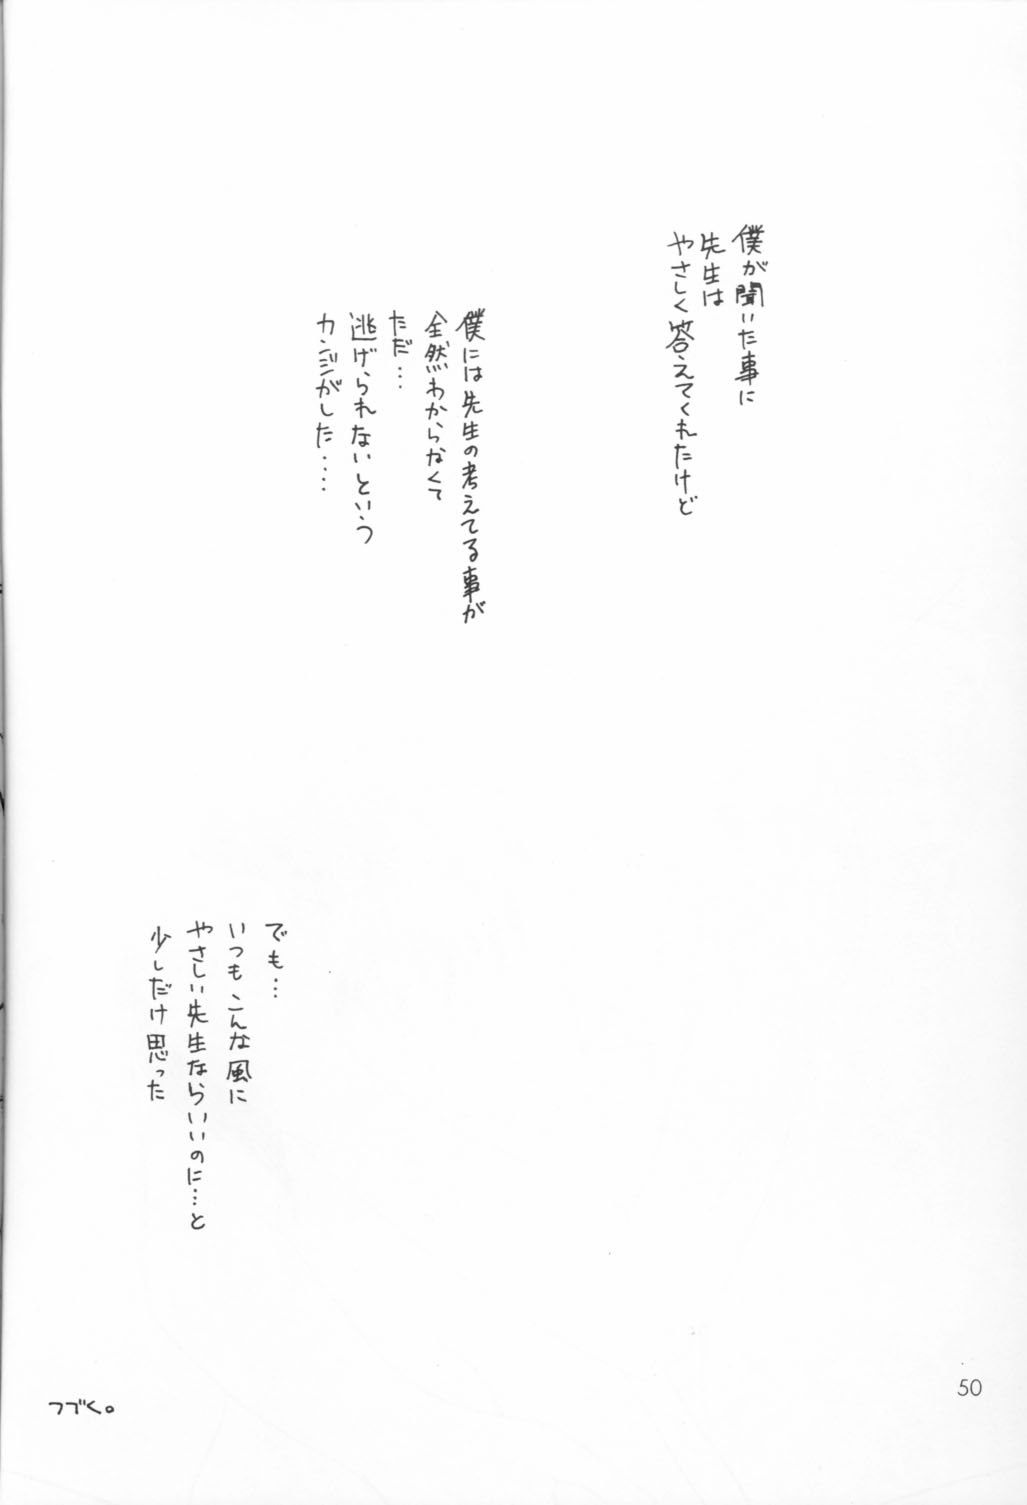 僕が聞いた事に
先生は
やさしく答えてくれたけど
僕には先生の考えてる事が
全然わからなくて
ただ…
逃げられないという
カンジがした‥‥
でも…
いつもこんな風に
やさしい先生ならいいのに…と
少しだけ思った
つづく。
50